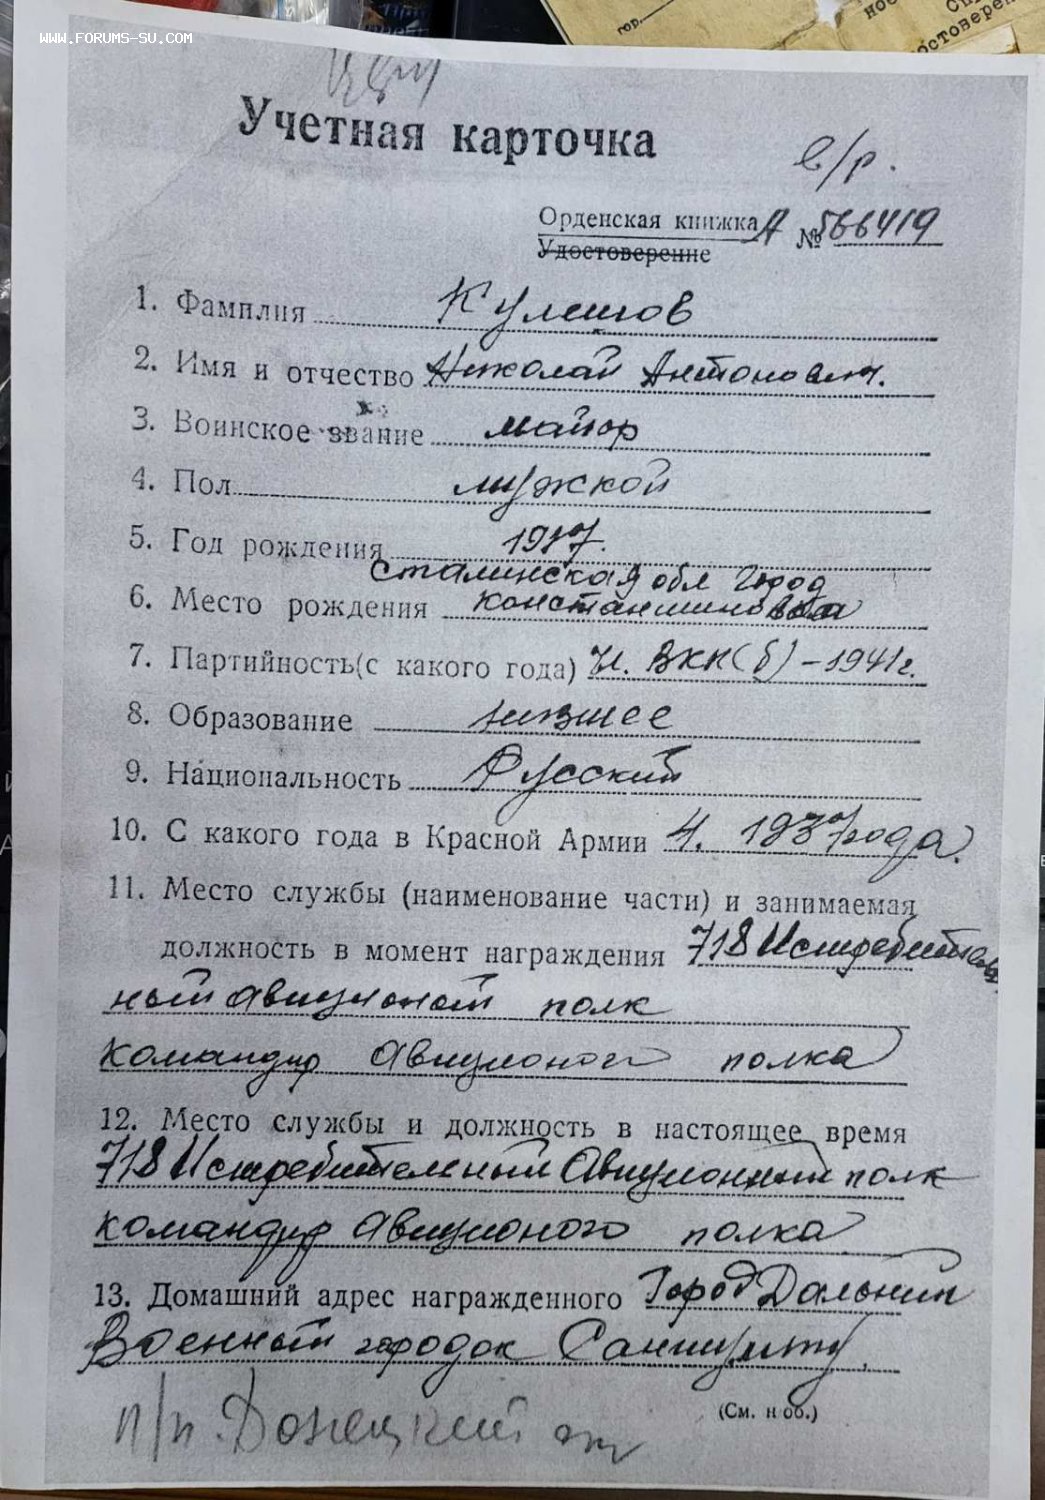 WWW.FORUMS-SU.COM
гор.
Учетная карточка
в/р.
Орденская книжка А № 566419
Удостоверение
1. Фамилия Кулешов
2. Имя и отчество Николай Антонович.
3. Воинское звание майор
4. Пол мужской
5. Год рождения 1917.
Сталинская обл город
6. Место рождения Константиновка
7. Партийность(с какого года) Чл. ВКП(б) – 1941г.
8. Образование низшее
9. Национальность Русский
10. С какого года в Красной Армии 1937года.
11. Место службы (наименование части) и занимаемая
должность в момент награждения 718 Истребитель
ный авиционый полк
командир авиционого полка
12. Место службы и должность в настоящее время
718 Истребительный Авиционный полк
командир авиционого полка
13. Домашний адрес награжденного Город Дальний
Военный городок
(См. н об.)
п/п. Донецкий